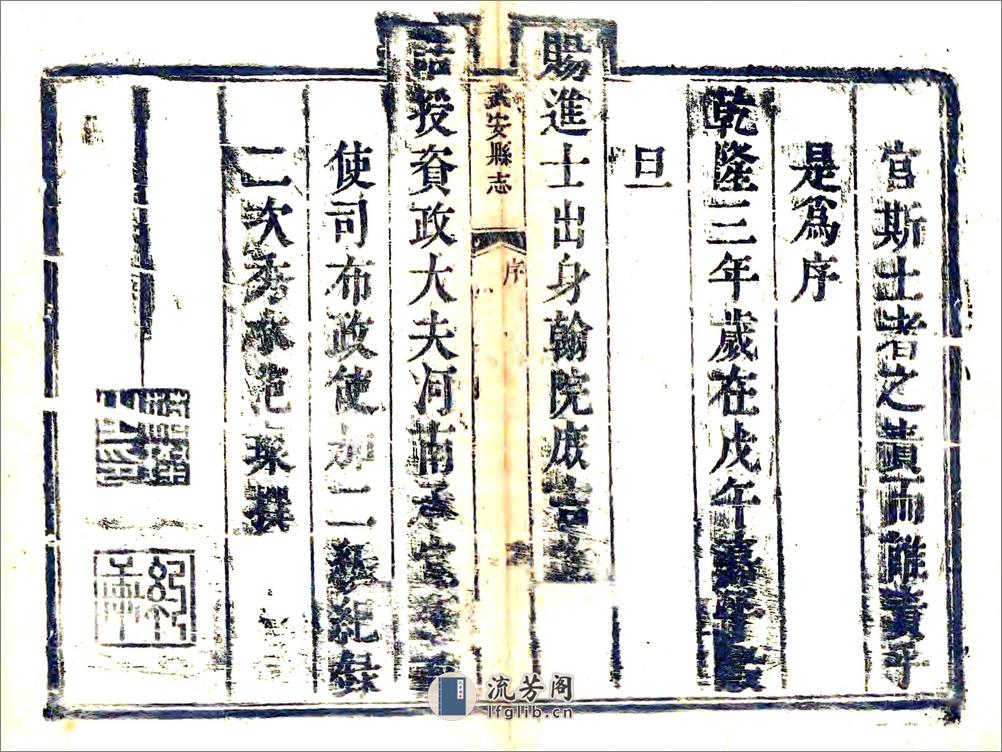 官斯土者之責而誰責乎
是為序
乾隆三年歲在戊午
旦
賜進士出身翰院庶吉士
武安縣志
序
誥授資政大夫河南承宣
使司布政使加二級紀錄
二次秀水范璨撰
流芳阁
lfglib.cn